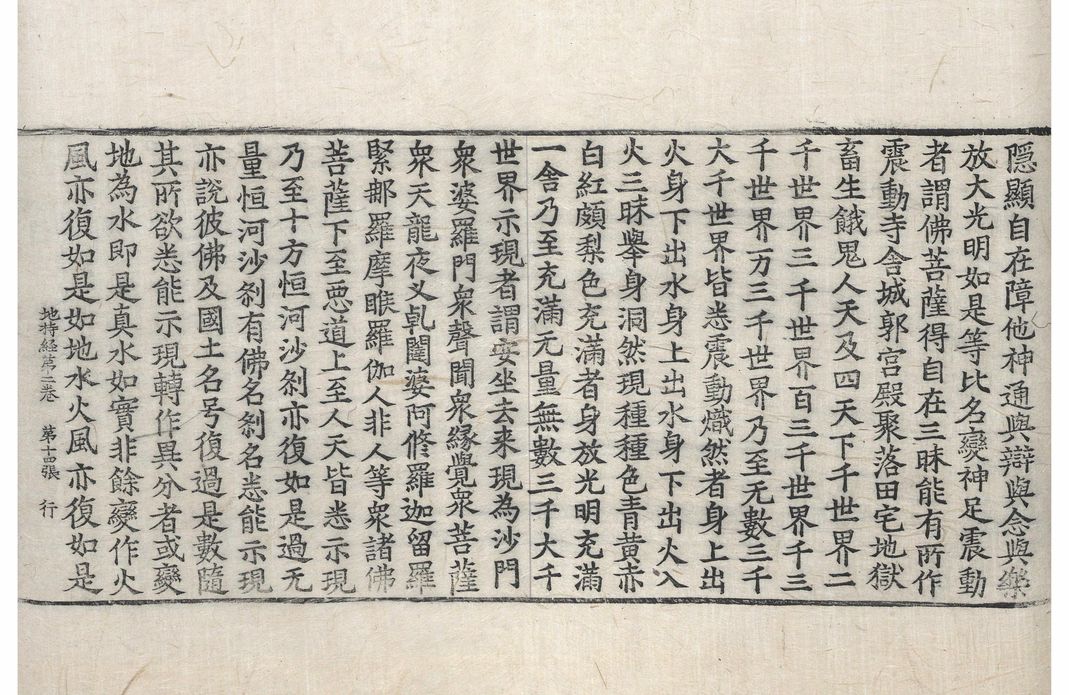 隠顯自在障他神通與辯與念與樂
放大光明如是等比名變神足震動
者謂佛菩薩得自在三昧能有所作
震動寺舍城郭宮殿聚落田宅地獄
畜生餓鬼人天及四天下千世界二
千世界三千世界百三千世界千三
千世界万三千世界乃至无數三千
大千世界皆悉震動熾然者身上出
火身下出水身上出水身下出火入
火三昧舉身洞然現種種色青黃赤
白紅頗梨色充滿者身放光明充滿
一舍乃至充滿无量無數三千大千
世界示現者謂安坐去来現為沙門
衆婆羅門衆聲聞衆緣覺衆菩薩
衆天龍夜叉乹闥婆阿修羅迦留羅
緊那羅摩睺羅伽人非人等衆諸佛
菩薩下至惡道上至人天皆悉示現
乃至十方恒河沙刹亦復如是過无
量恒河沙刹有佛名刹名悉能示現
亦說彼佛及國土名号復過是數隨
其所欲悉能示現轉作異分者或變
地為水即是真水如實非餘變作火
風亦復如是如地水火風亦復如是
地持経第二巻 第十四張 行